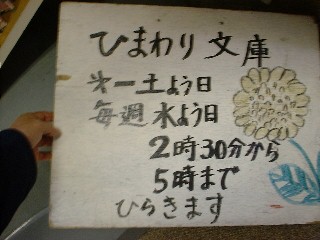 ひまわり文庫
才一土よう日
毎週水よう日
2時30分から
5時まで
ひらきます